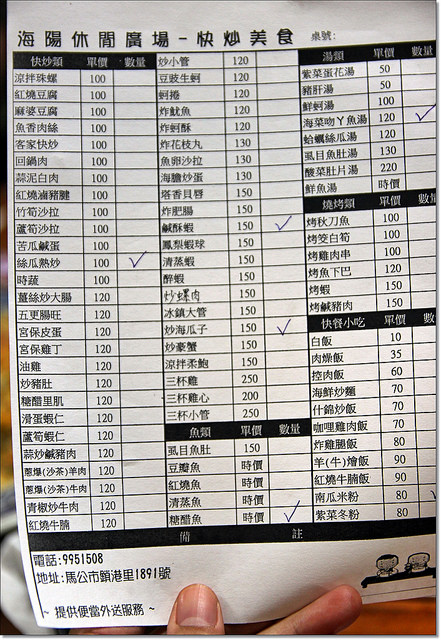 海陽休閒廣場-快炒美食 桌號:
快炒類 單價 數量
涼拌珠螺 100
紅燒豆腐 100
麻婆豆腐 100
魚香肉絲 100
客家快炒 100
回鍋肉 100
蒜泥白肉 100
紅燒滷豬腱 100
竹筍沙拉 100
蘆筍沙拉 100
苦瓜鹹蛋 100
絲瓜熟炒 100
時蔬 100
薑絲炒大腸 120
五更腸旺 120
宮保皮蛋 120
宮保雞丁 120
油雞 120
炒豬肚 120
糖醋里肌 120
滑蛋蝦仁 120
蘆筍蝦仁 120
蒜炒鹹豬肉 120
蔥爆(沙茶)羊肉 120
蔥爆(沙茶)牛肉 120
青椒炒牛肉 120
紅燒牛腩 120
炒小管 120
豆豉生蚵 120
蚵捲 120
炸魷魚 120
炸蚵酥 120
炸花枝丸 130
魚卵沙拉 130
海膽炒蛋 130
塔香貝唇 150
炸肥腸 150
鹹酥蝦 150
鳳梨蝦球 150
清蒸蝦 150
醉蝦 150
炒螺肉 150
冰鎮大管 150
炒海瓜子 150
炒豪蟹 150
涼拌柔鮑 150
三杯雞 250
三杯雞心 200
三杯小管 250
魚類 單價 數量
虱目魚肚 150
豆瓣魚 時價
紅燒魚 時價
清蒸魚 時價
糖醋魚 時價
湯類 單價 數
紫菜蛋花湯 50
豬肝湯 50
鮮蚵湯 100
海菜吻ㄚ魚湯 120
蛤蠣絲瓜湯 120
虱目魚肚湯 130
酸菜肚片湯 220
鮮魚湯 時價
燒烤類 單價 數
烤秋刀魚 100
烤筊白筍 100
烤雞肉串 100
烤魚下巴 120
烤蝦 150
烤鹹豬肉 150
快餐小吃 單價 數
白飯 10
肉燥飯 35
控肉飯 60
海鮮炒麵 70
什錦炒飯 70
咖哩雞肉飯 70
炸雞腿飯 80
羊(牛)燴飯 90
紅燒牛腩飯 90
南瓜米粉 80
紫菜冬粉 80
備 註
電話:9951508
地址:馬公市鎖港里1891號
~ 提供便當外送服務 ~